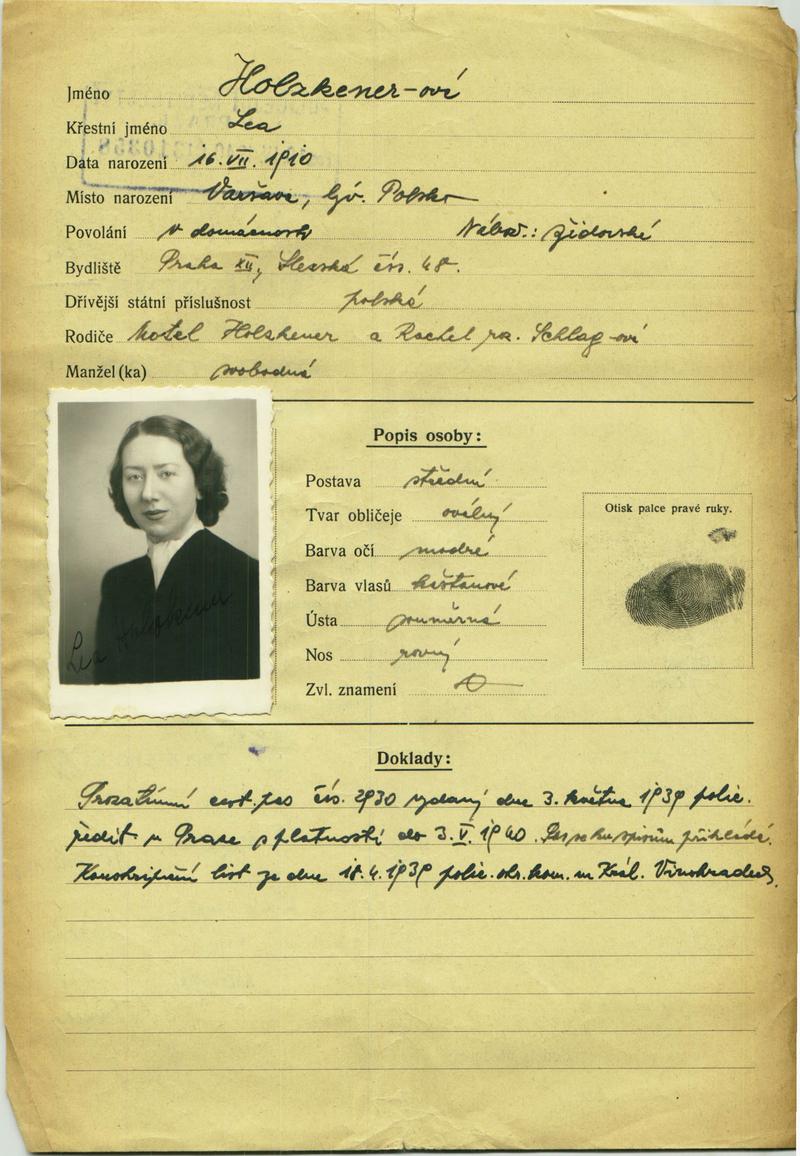 Jméno Holzkener-oví
Křestní jméno Lea
Data narození 16. VII. 1910
Místo narození Varšava, Gv. Polsko
Povolání v domácnosti Nábož.: židovské
Bydliště Praha XII, Slezská čís. 48.
Dřívější státní příslušnost polská
Rodiče Motel Holzkener a Rachel roz. Schlag-oví
Manžel(ka) svobodná
Popis osoby:
Postava střední
Tvar obličeje oválný
Barva očí modré
Barva vlasů kaštanové
Ústa souměrná
Nos rovný
Zvl. znamení 0
Otisk palce pravé ruky.
Lea Holzkener
Doklady:
Prozatímní cest. pas čís. 2930 vydaný dne 3. května 1939 polic.
ředit. v Praze s platností do 3. V. 1940.
Konskripční list ze dne 18.4.1939 polic. okr. kom. na Král. Vinohradech.